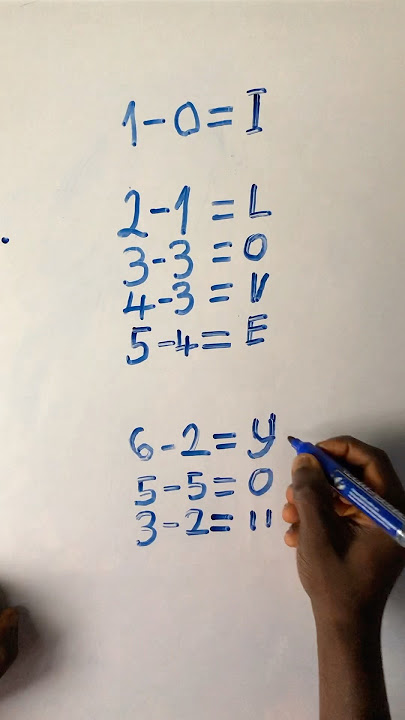 1-0=I
2-1=L
3-3=O
4-3=V
5-4=E
6-2=y
5-5=O
3-2=II